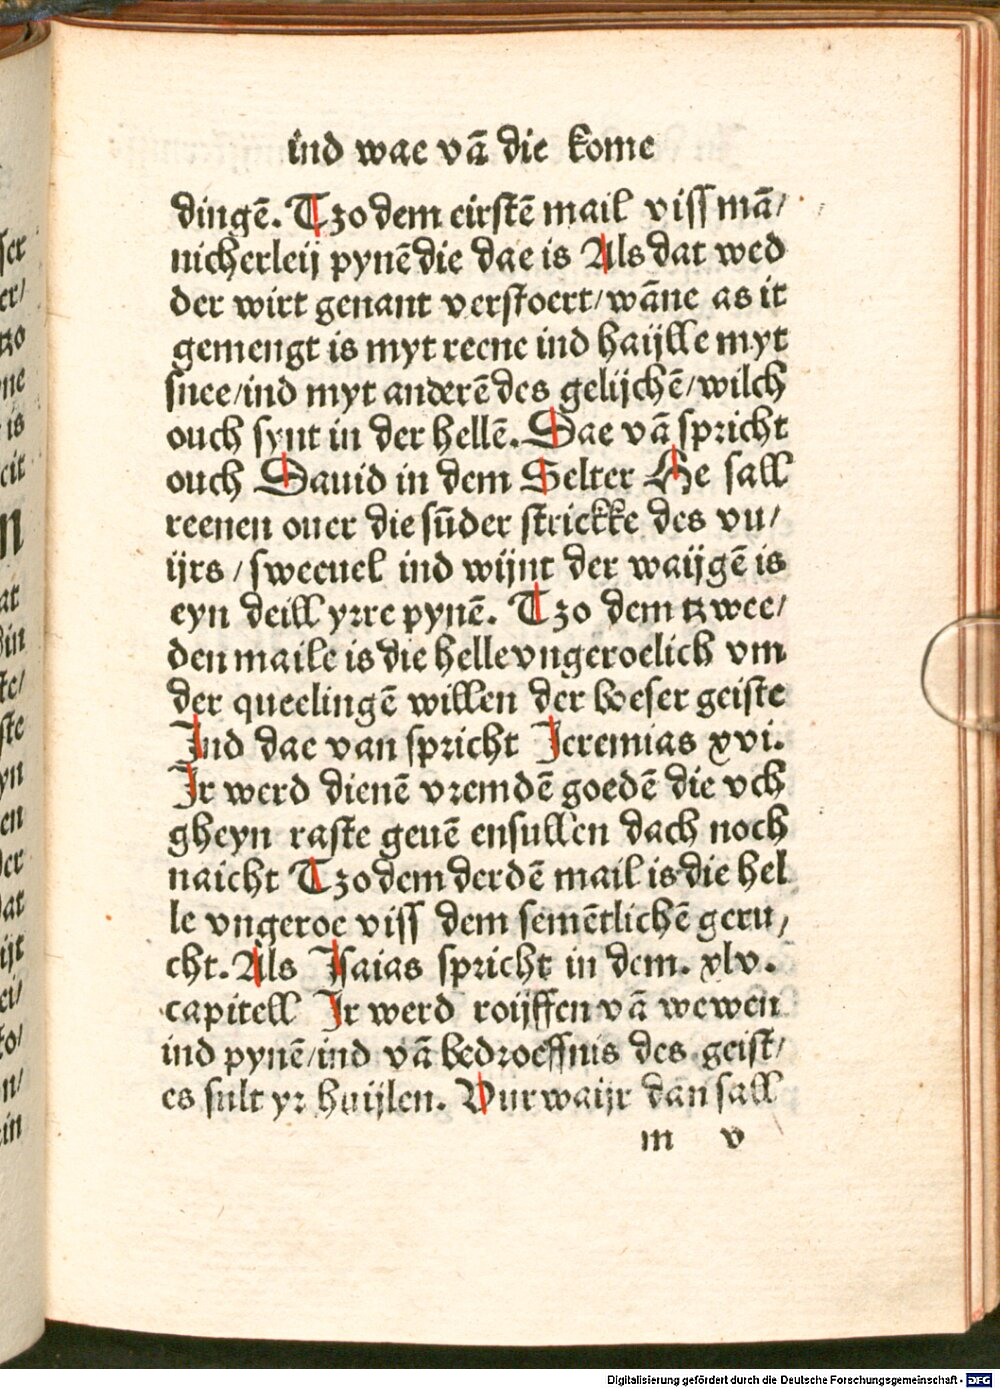 ind wae vā die kome
dingē. Tzo dem eirstē mail viss mā/
nicherleij pynē die dae is Als dat wed
der wirt genant verstoert/wāne as it
gemengt is myt reene ind haijlle myt
snee/ind myt anderē des gelijchē/wilch
ouch synt in der hellē. Dae vā spricht
ouch Dauid in dem Selter He sall
reenen ouer die sūder strickke des vu/
ijrs/sweeuel ind wijnt der waijgē is
eyn deill yrre pynē. Tzo dem tzwee/
den maile is die helle vngeroelich vm
der queelingē willen der boeser geiste
Ind dae van spricht Jeremias xvi.
Ir werd dienē vremdē goedē die vch
gheyn raste geuē ensullen dach noch
naicht Tzo dem derdē mail is die hel
le vngeroe viss dem semētlichē geru/
cht. Als Isaias spricht in dem. xlv.
capitell Ir werd roijffen vā wewen
ind pynē/ind vā bedroeffnis des geist/
es sult yr huijlen. Vurwaijr dan sall
m v
Digitalisierung gefördert durch die Deutsche Forschungsgemeinschaft - DFG